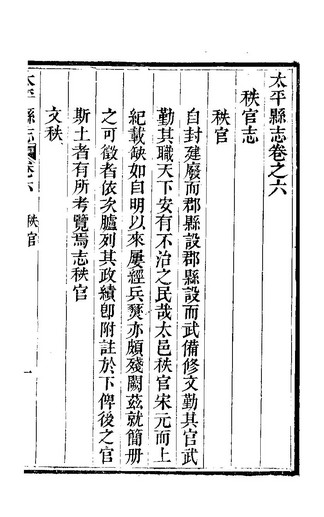 太平縣志卷之六
秩官志
秩官
自封建廢而郡縣設郡縣設而武備修文勤其官武
勤其職天下安有不治之民哉太邑秩官宋元而上
紀載缺如自明以來屢經兵燹亦頗殘闕茲就簡册
之可徵者依次臚列其政績卽附註於下俾後之官
斯土者有所考覽焉志秩官
文秩
太平縣志
卷六
秩官
一